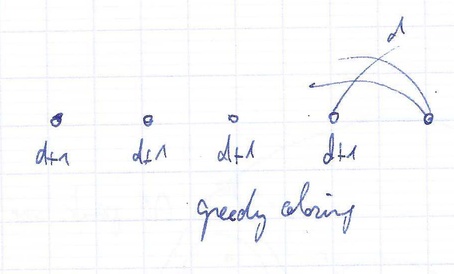 d
d+1 d+1 d+1 d+1
greedy coloring